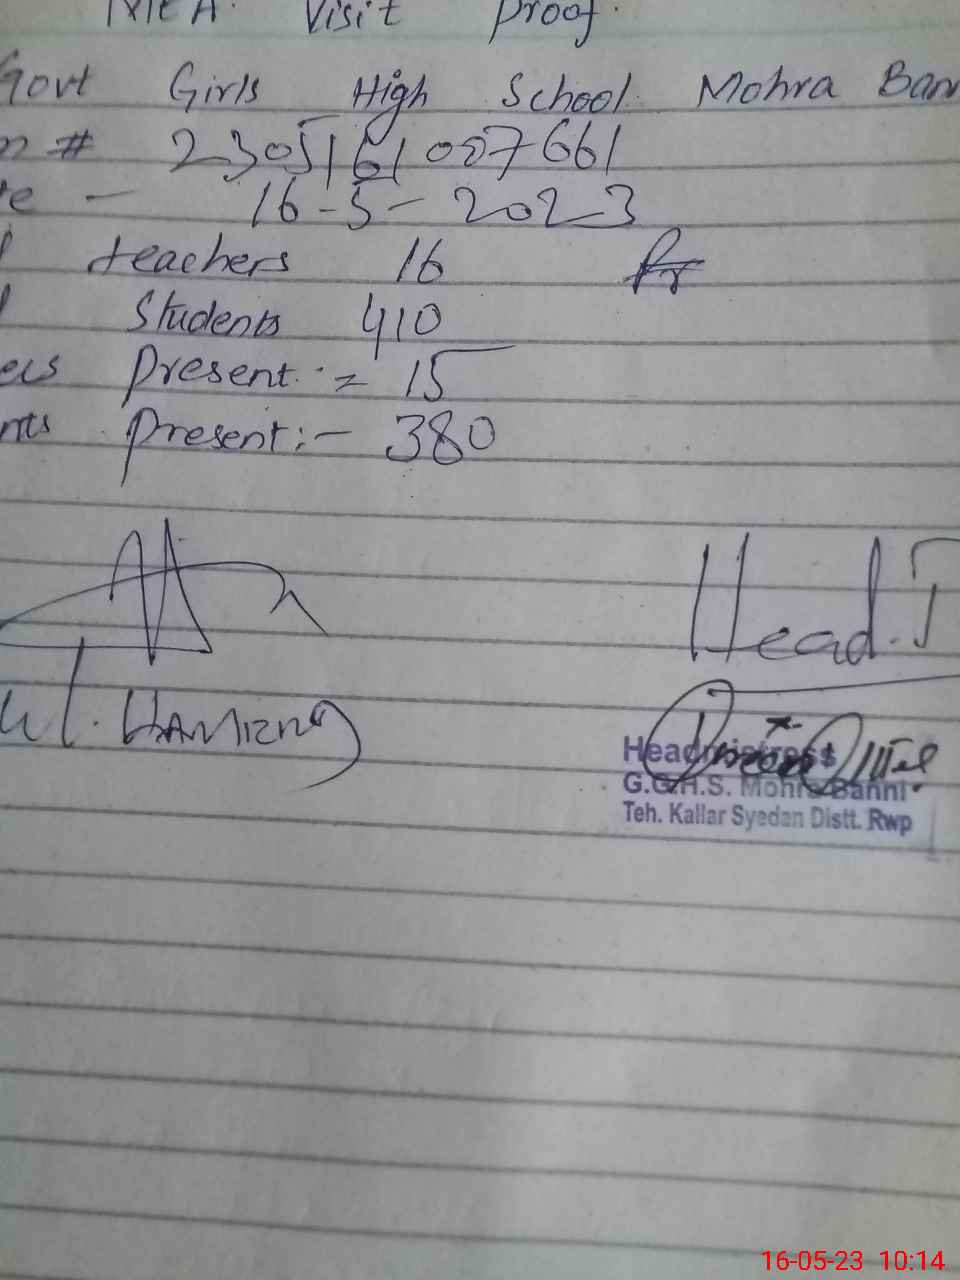 Visit Proof.
Govt Girls High School Mohra Bann
n # 2305161007661
te - 16-5-2023
l teachers 16
l Students 410
ers Present := 15
nts Present:- 380
Head.T
Headmistress
G.G.H.S. Mohra Banni
Teh. Kallar Syedan Distt. Rwp
16-05-23 10:14